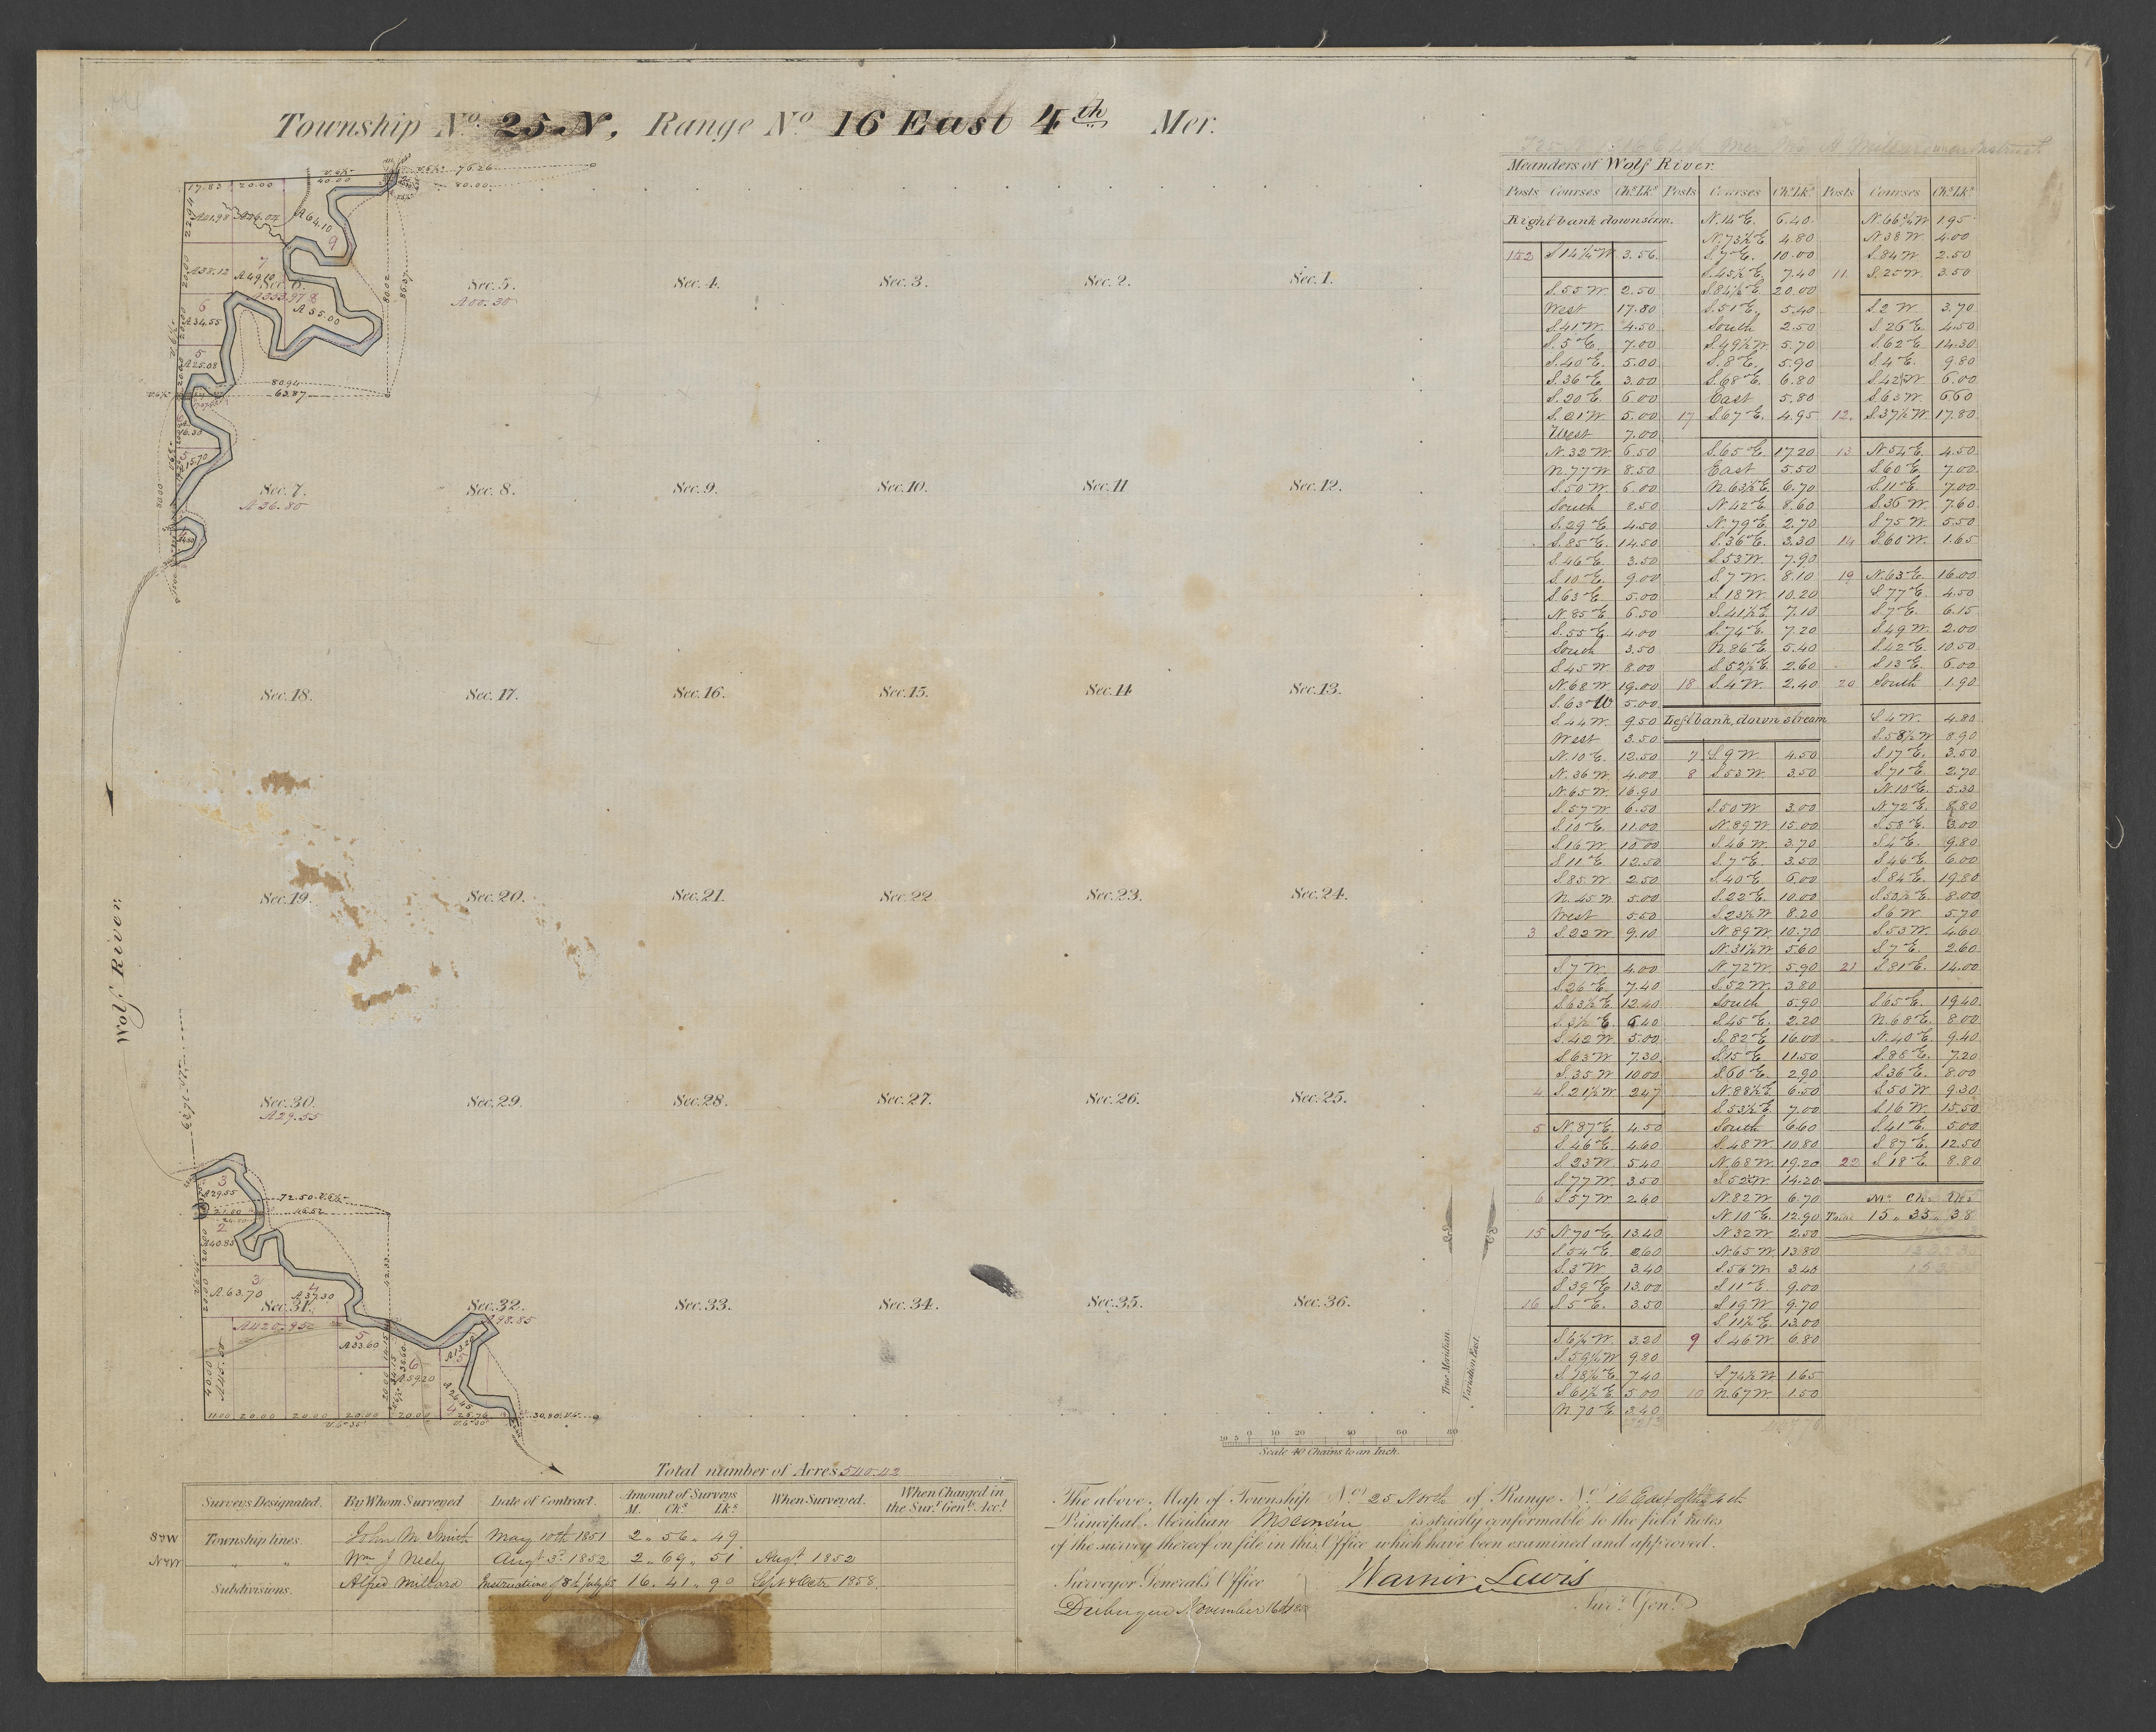 Township No. 25 N, Range No 16 East 4th Mer.
Meanders of Wolf River.
Posts Courses Chs Lks Posts Courses Chs Lks Posts Courses Chs Lks
Right bank downstrm.
152 S 14¼ W. 3.56.
S. 55 W. 2.50
West 17.80
S. 41 W. 4.50
S. 5 E. 7.00
S. 40 E. 5.00
S. 36 E. 3.00
S. 20 E. 6.00
S. 21 W. 5.00
West 7.00
N. 32 W. 6.50
N. 77 W. 8.50
S. 50 W. 6.00
South 8.50
S. 29 E. 4.50
S. 85 E. 14.50
S. 46 E. 3.50
S. 10 E. 9.00
S. 63 E. 5.00
N. 85 E. 6.50
S. 55 E. 4.00
South 3.50
S. 45 W. 8.00
N. 68 W. 19.00
S. 63 W 5.00
S. 44 W. 9.50
West 3.50
N. 10 E. 12.50
N. 36 W. 4.00
N. 65 W. 16.90
S. 57 W. 6.50
S. 10 E. 11.00
S. 16 W. 10.00
S. 11 E 12.50
S. 85 W. 2.50
N. 45 W. 5.00
West 5.50
3 S 22 W. 9.10
S. 7 W. 4.00
S. 26 E. 7.40
S. 63½ E. 12.40
S. 3½ E. 6.40
S. 42 W. 5.00
S. 63 W. 7.30
S. 35 W 10.00
4 S. 21½ W. 2.47
5 N. 87 E. 4.50
S. 46 E. 4.60
S. 23 W. 5.40
S. 77 W. 3.50
6 S. 57 W. 2.60
15 N. 70 E. 13.40
S. 54 E. 2.60
S. 3 W. 3.40
S. 39 E. 13.00
16 S. 5 E. 3.50
S. 6¼ W. 3.20
S. 59½ W. 9.80
S. 48½ E. 7.40
S. 61½ E. 5.00
N. 70 E. 3.40
N. 14 E. 6.40
N. 73½ E. 4.80
S. 7 E. 10.00
S. 45½ E. 7.40
S. 84½ E. 20.00
S. 51 E. 5.40
South 2.50
S. 49½ W. 5.70
S. 8 E. 5.90
S. 68 E. 6.80
East 5.80
17 S. 67 E. 4.95
S. 65 E. 17.20
East 5.50
N. 63½ E. 6.70
N. 42 E. 8.60
N. 79 E. 2.70
S. 36 E. 3.30
S. 53 W. 7.90
S. 7 W. 8.10
S. 18 W. 10.20
S. 41½ E. 7.10
S. 74 E. 7.20
N. 86 E. 5.40
S. 52½ E. 2.60
18 S. 4 W. 2.40
Left bank, down stream
7 S. 9 W. 4.50
8 S. 53 W. 3.50
S. 50 W 3.00
N. 89 W. 15.00
S. 46 W. 3.70
S. 7 E. 3.50
S. 40 E. 6.00
S. 22 E. 10.00
S. 23½ W. 8.20
N. 89 W. 10.70
N. 31½ W. 5.60
N. 72 W. 5.90
S. 52 W. 3.80
South 5.90
S. 45 E. 2.20
S. 82 E. 16.00
S. 15 E. 11.50
S. 60 E. 2.90
N. 88½ E. 6.50
S. 53½ E. 7.00
South 6.60
S. 48 W. 10.80
N. 68 W. 19.20
S. 52 W. 14.20
N. 82 W. 6.70
N. 10 E. 12.90
N. 32 W. 2.50
N. 65 W. 13.80
S. 56 W. 3.40
S. 11 E. 9.00
S. 19 W. 9.70
S. 11½ E. 13.00
9 S. 46 W. 6.80
S. 74½ W. 1.65
10 N. 67 W. 1.50
N. 66¾ W. 1.95
N. 38 W. 4.00
S. 84 W. 2.50
11 S. 25 W. 3.50
S. 2 W. 3.70
S. 26 E. 4.50
S. 62 E. 14.30
S. 4 E. 9.80
S. 42 W. 6.00
S. 63 W. 6.60
12. S. 37½ W. 17.80
13 N. 54 E. 4.50
S. 60 E. 7.00
S. 11 E. 7.00
S. 36 W. 7.60
S. 75 W. 5.50
14 S. 60 W. 1.65
19 N. 63 E. 16.00
S. 77 E. 4.50
S. 7 E. 6.15
S. 49 W. 2.00
S. 42 E. 10.50
S. 13 E. 6.00
20 South 1.90
S. 4 W. 4.80
S. 58½ W 8.90
S. 17 E. 3.50
S. 71 E. 2.70
N. 10 E. 5.30
N. 72 E. 8.80
S. 58 E. 3.00
S. 4 E. 9.80
S. 46 E. 6.00
S. 84 E. 19.80
S. 50½ E. 8.00
S. 6 W. 5.70
S. 53 W. 4.60
S. 7 E. 2.60
21 S. 81 E. 14.00
S. 65 E. 19.40
N. 68 E. 8.00
N. 40 E. 9.40
S. 88 E. 7.20
S. 36 E. 8.00
S. 50 W 9.30
S. 16 W. 15.50
S. 41 E. 5.00
S. 87 E. 12.50
22 S. 18 E. 8.80
Ms. Chs. Lks.
Total 15 " 35 " 38
17.83 20.00 40.00 76.26
80.00
22.94 A41.98 A64.10
9
7
A38.12 A49.10
Sec. 6.
6
A34.55
A55.00
5
A25.08
80.02 86.37
80.94
63.87
16.30
5
A15.70
80.00
Sec. 5.
A 00.30
Sec. 4.
Sec. 3.
Sec. 2.
Sec. 1.
Sec. 7.
A 36.80
Sec. 8.
Sec. 9.
Sec. 10.
Sec. 11
Sec. 12.
Sec. 18.
Sec. 17.
Sec. 16.
Sec. 15.
Sec. 14
Sec. 13.
Sec. 19.
Sec. 20.
Sec. 21.
Sec. 22
Sec. 23.
Sec. 24.
Wolf River.
Sec. 30.
A 29.55
Sec. 29.
Sec. 28.
Sec. 27.
Sec. 26.
Sec. 25.
3
A29.55
72.50
46.52
2
A40.85
3
A 63.70
4
A37.30
Sec. 31.
Sec. 32.
A98.85
Sec. 33.
Sec. 34.
Sec. 35.
Sec. 36.
5
A33.60
6
A59.20
42.33
40.00
11.00 20.00 20.00 20.00 20.00 25.76 30.80
True Meridian.
Variation East.
20 5 0 10 20 40 60 80
Scale 40 Chains to an Inch.
Total number of Acres 540.42
Surveys Designated. By Whom Surveyed Date of Contract. Amount of Surveys M. Chs Lks When Surveyed. When Charged in the Sur. Genl's Acct
S & W Township lines. John M. Smith May 10th 1851 2 " 56 " 49
N & W " " Wm J Neely Augt 3d 1852 2 " 69 " 51 Augt 1852
Subdivisions. Alfred Millard Instructions of 8th July 16 " 41 " 90 Sept & Octr 1858.
The above Map of Township No. 25 North of Range No. 16 East of the 4th
Principal Meridian Wisconsin is strictly conformable to the field notes
of the survey thereof on file in this Office which have been examined and approved.
Surveyor General's Office
Dubuque November 16th 1858
Warner Lewis
Sur. Genl.